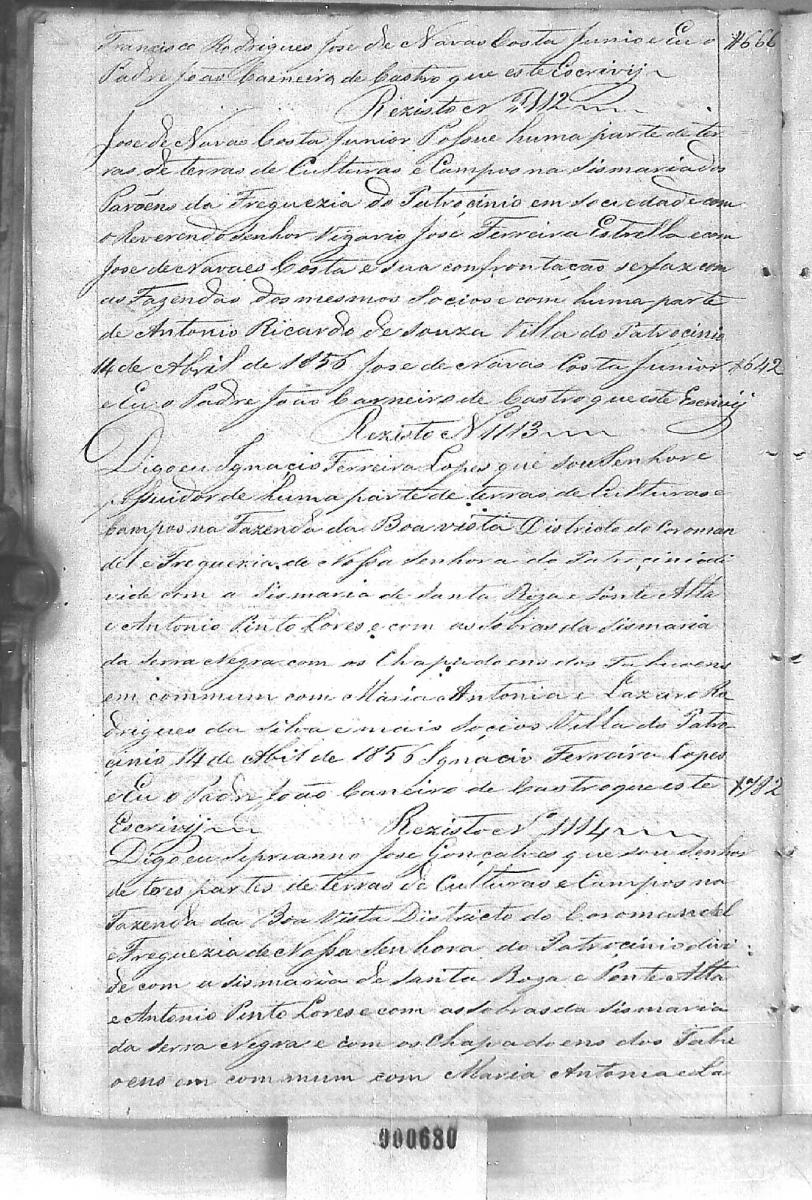 Francisco Rodrigues Jose de Navaes Costa Junior e Eu o #666
Padre João Carneiro de Castro que este Escrivij
Rezisto Nº 1112
Jose de Navaes Costa Junior Possue huma parte de ter
ras de terras de Culturas e Campos na Sismaria dos
Paroëns da Freguezia do Patrocinio em Sociedade com
o Reverendo Senhor Vigario José Ferreira Estrella e com
Jose de Navaes Costa e sua confrontação se faz com
as Fazendas dos mesmos Socios e com huma parte
de Antonio Ricardo de Souza Villa do Patrocinio
14 de Abril de 1856 Jose de Navaes Costa Junior #642
e Eu o Padre João Carneiro de Castro que este Escrivij
Rezisto Nº 1113
Digo eu Ignacio Ferreira Lopes que sou Senhor e
possuidor de huma parte de terras de Culturas e
Campos na Fazenda da Boa vista Districto do Coroman
del e Freguezia de Nossa Senhora do Patrocinio di
vide com a Sismaria de Santa Roza e Ponte Alta
e Antonio Pinto Lores e com as Sobras da Sismaria
da Serra Negra com os Chapadoens dos
em commum com Maria Antonia e Lazaro Ro
drigues da Silva e mais Socios Villa do Patro
cinio 14 de Abil de 1856 Ignacio Ferreira Lopes
e Eu o Padre João Caneiro de Castro que este #782
Escrivij Rezisto Nº 1114
Digo eu Siprianno José Gonçalves que sou Senhor
de tres partes de terras de Culturas e Campos na
Fazenda da Boa Vista Districto do Coromandel
e Freguezia de Nossa Senhora do Patrocinio divi
de com a Sismaria de Santa Roza e Ponte Alta
e Antonio Pinto Lores e com as Sobras da Sismaria
da Serra Negra e com os Chapadoens dos
em commum com Maria Antonia e La
000680